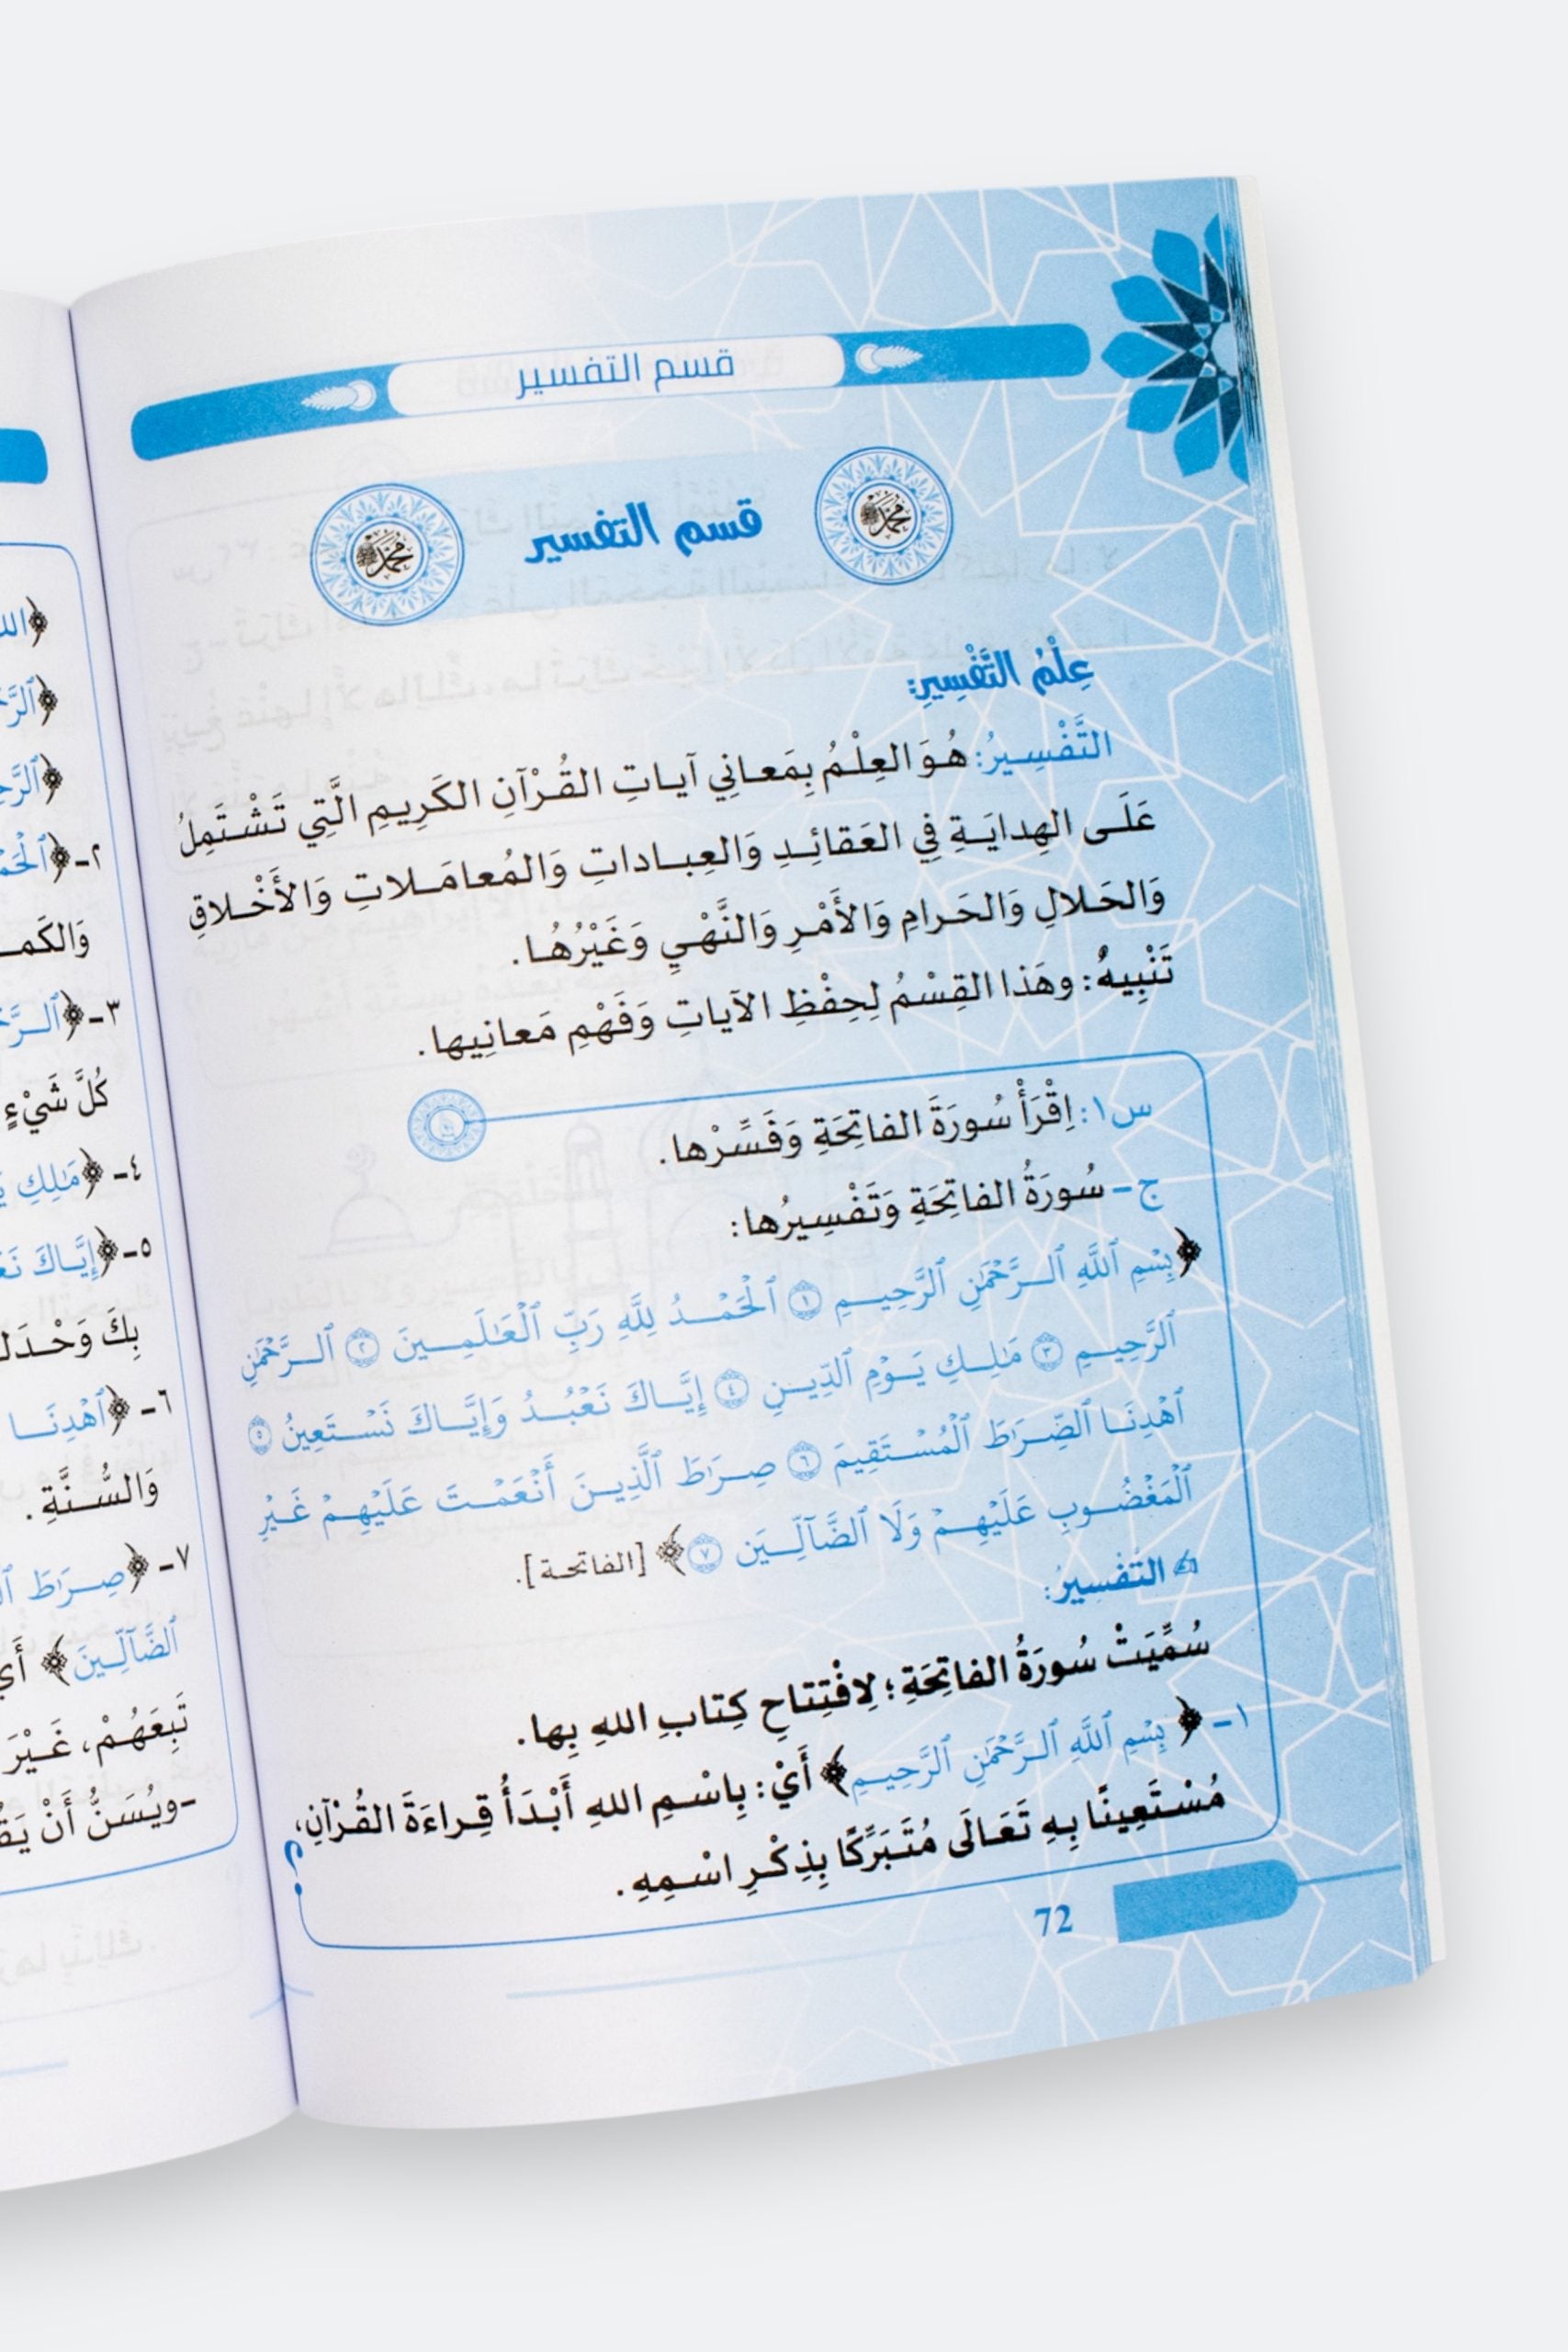 قسم التفسير
قسم التفسير
عِلْمُ التَّفْسِيرِ:
التَّفْسِيرُ: هُوَ العِلْمُ بِمَعانِي آياتِ القُرْآنِ الكَرِيمِ الَّتِي تَشْتَمِلُ
عَلَى الهِدايَةِ فِي العَقائِدِ وَالعِباداتِ وَالمُعامَلاتِ وَالأَخْلاقِ
وَالحَلالِ وَالحَرامِ وَالأَمْرِ وَالنَّهْيِ وَغَيْرُهُا.
تَنْبِيهٌ: وهَذا القِسْمُ لِحِفْظِ الآياتِ وَفَهْمِ مَعانِيها.
س١: اِقْرَأْ سُورَةَ الفاتِحَةِ وَفَسِّرْها.
ج- سُورَةُ الفاتِحَةِ وَتَفْسِيرُها:
﴿بِسْمِ ٱللَّهِ ٱلرَّحْمَٰنِ ٱلرَّحِيمِ ١ ٱلْحَمْدُ لِلَّهِ رَبِّ ٱلْعَٰلَمِينَ ٢ ٱلرَّحْمَٰنِ
ٱلرَّحِيمِ ٣ مَٰلِكِ يَوْمِ ٱلدِّينِ ٤ إِيَّاكَ نَعْبُدُ وَإِيَّاكَ نَسْتَعِينُ ٥
ٱهْدِنَا ٱلصِّرَٰطَ ٱلْمُسْتَقِيمَ ٦ صِرَٰطَ ٱلَّذِينَ أَنْعَمْتَ عَلَيْهِمْ غَيْرِ
ٱلْمَغْضُوبِ عَلَيْهِمْ وَلَا ٱلضَّآلِّينَ ٧﴾ [الفاتحة].
التَّفْسِيرُ:
سُمِّيَتْ سُورَةُ الفاتِحَةِ؛ لِافْتِتاحِ كِتابِ اللهِ بِها.
١- ﴿بِسْمِ ٱللَّهِ ٱلرَّحْمَٰنِ ٱلرَّحِيمِ﴾ أَيْ: بِاسْمِ اللهِ أَبْدَأُ قِراءَةَ القُرْآنِ،
مُسْتَعِينًا بِهِ تَعَالَى مُتَبَرِّكًا بِذِكْرِ اسْمِهِ.
72
٢-
٣-
كُلَّ شَيْءٍ
٤- ﴿مَٰلِكِ
٥- ﴿إِيَّاكَ
بِكَ
٦- ﴿ٱهْدِنَا
وَالسُّنَّةِ.
٧- ﴿صِرَٰطَ
ٱلضَّآلِّينَ﴾
تَبِعَهُمْ، غَيْرَ
-ويُسَنُّ أَنْ